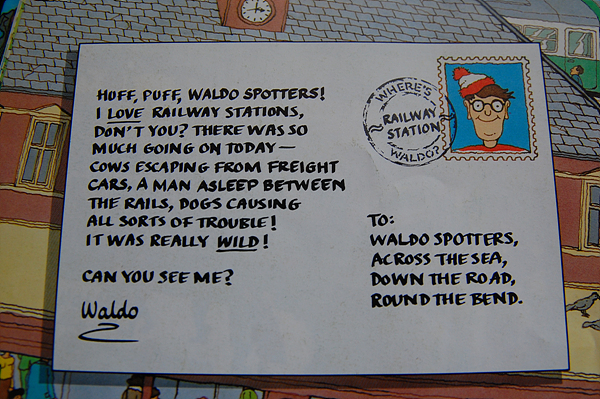 HUFF, PUFF, WALDO SPOTTERS!
I LOVE RAILWAY STATIONS,
DON'T YOU? THERE WAS SO
MUCH GOING ON TODAY—
COWS ESCAPING FROM FREIGHT
CARS, A MAN ASLEEP BETWEEN
THE RAILS, DOGS CAUSING
ALL SORTS OF TROUBLE!
IT WAS REALLY WILD!
CAN YOU SEE ME?
Waldo
WHERE'S
RAILWAY
STATION
WALDO?
TO:
WALDO SPOTTERS,
ACROSS THE SEA,
DOWN THE ROAD,
ROUND THE BEND.